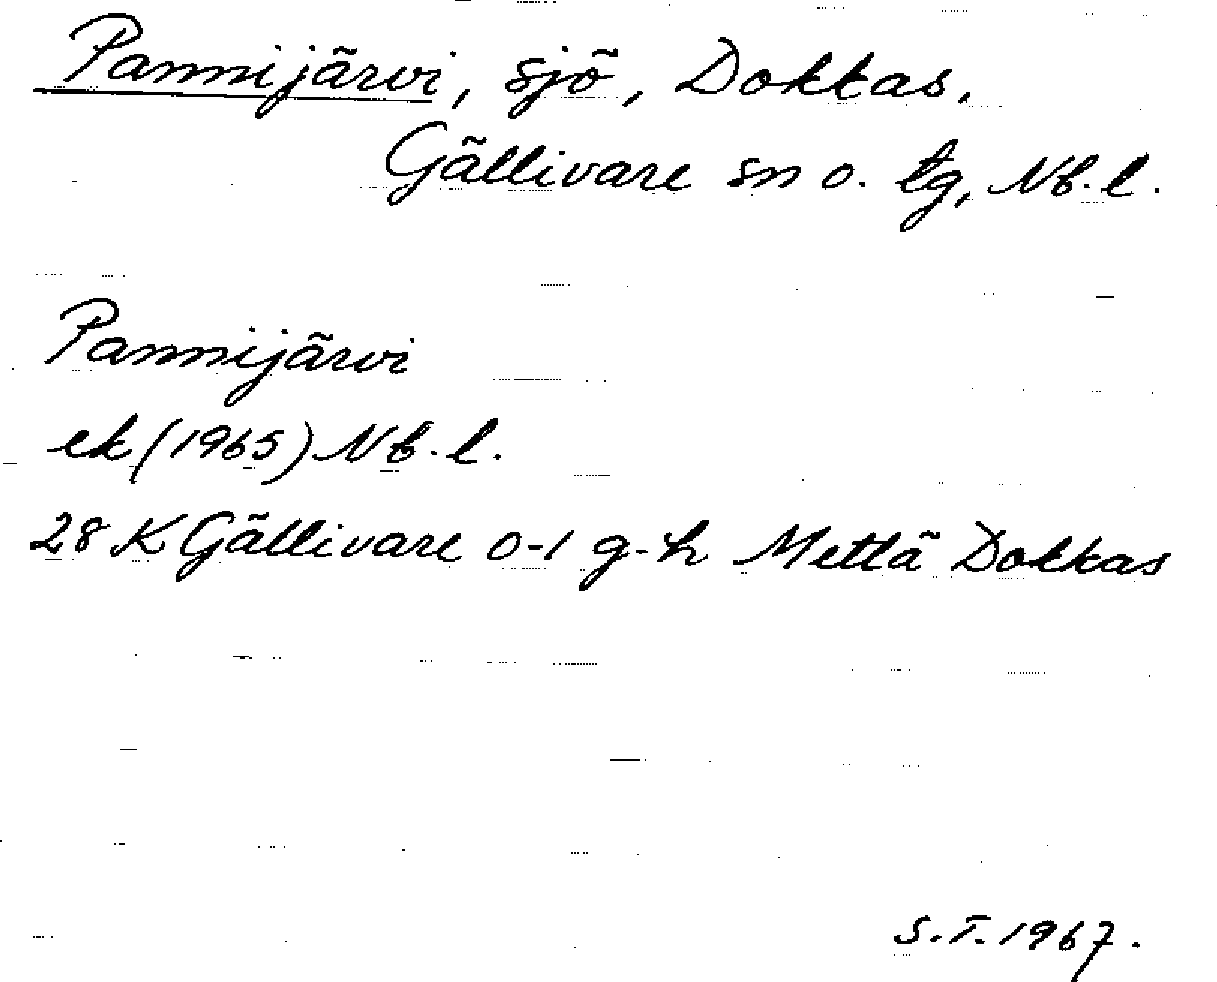 Pannijärvi, sjö, Dokkas.
Gällivare sn o. tg, Nb. l.
Pannijärvi
ek (1965) Nb. l.
28 K Gällivare 0-1 g-h Mettä Dokkas
S.T. 1967.